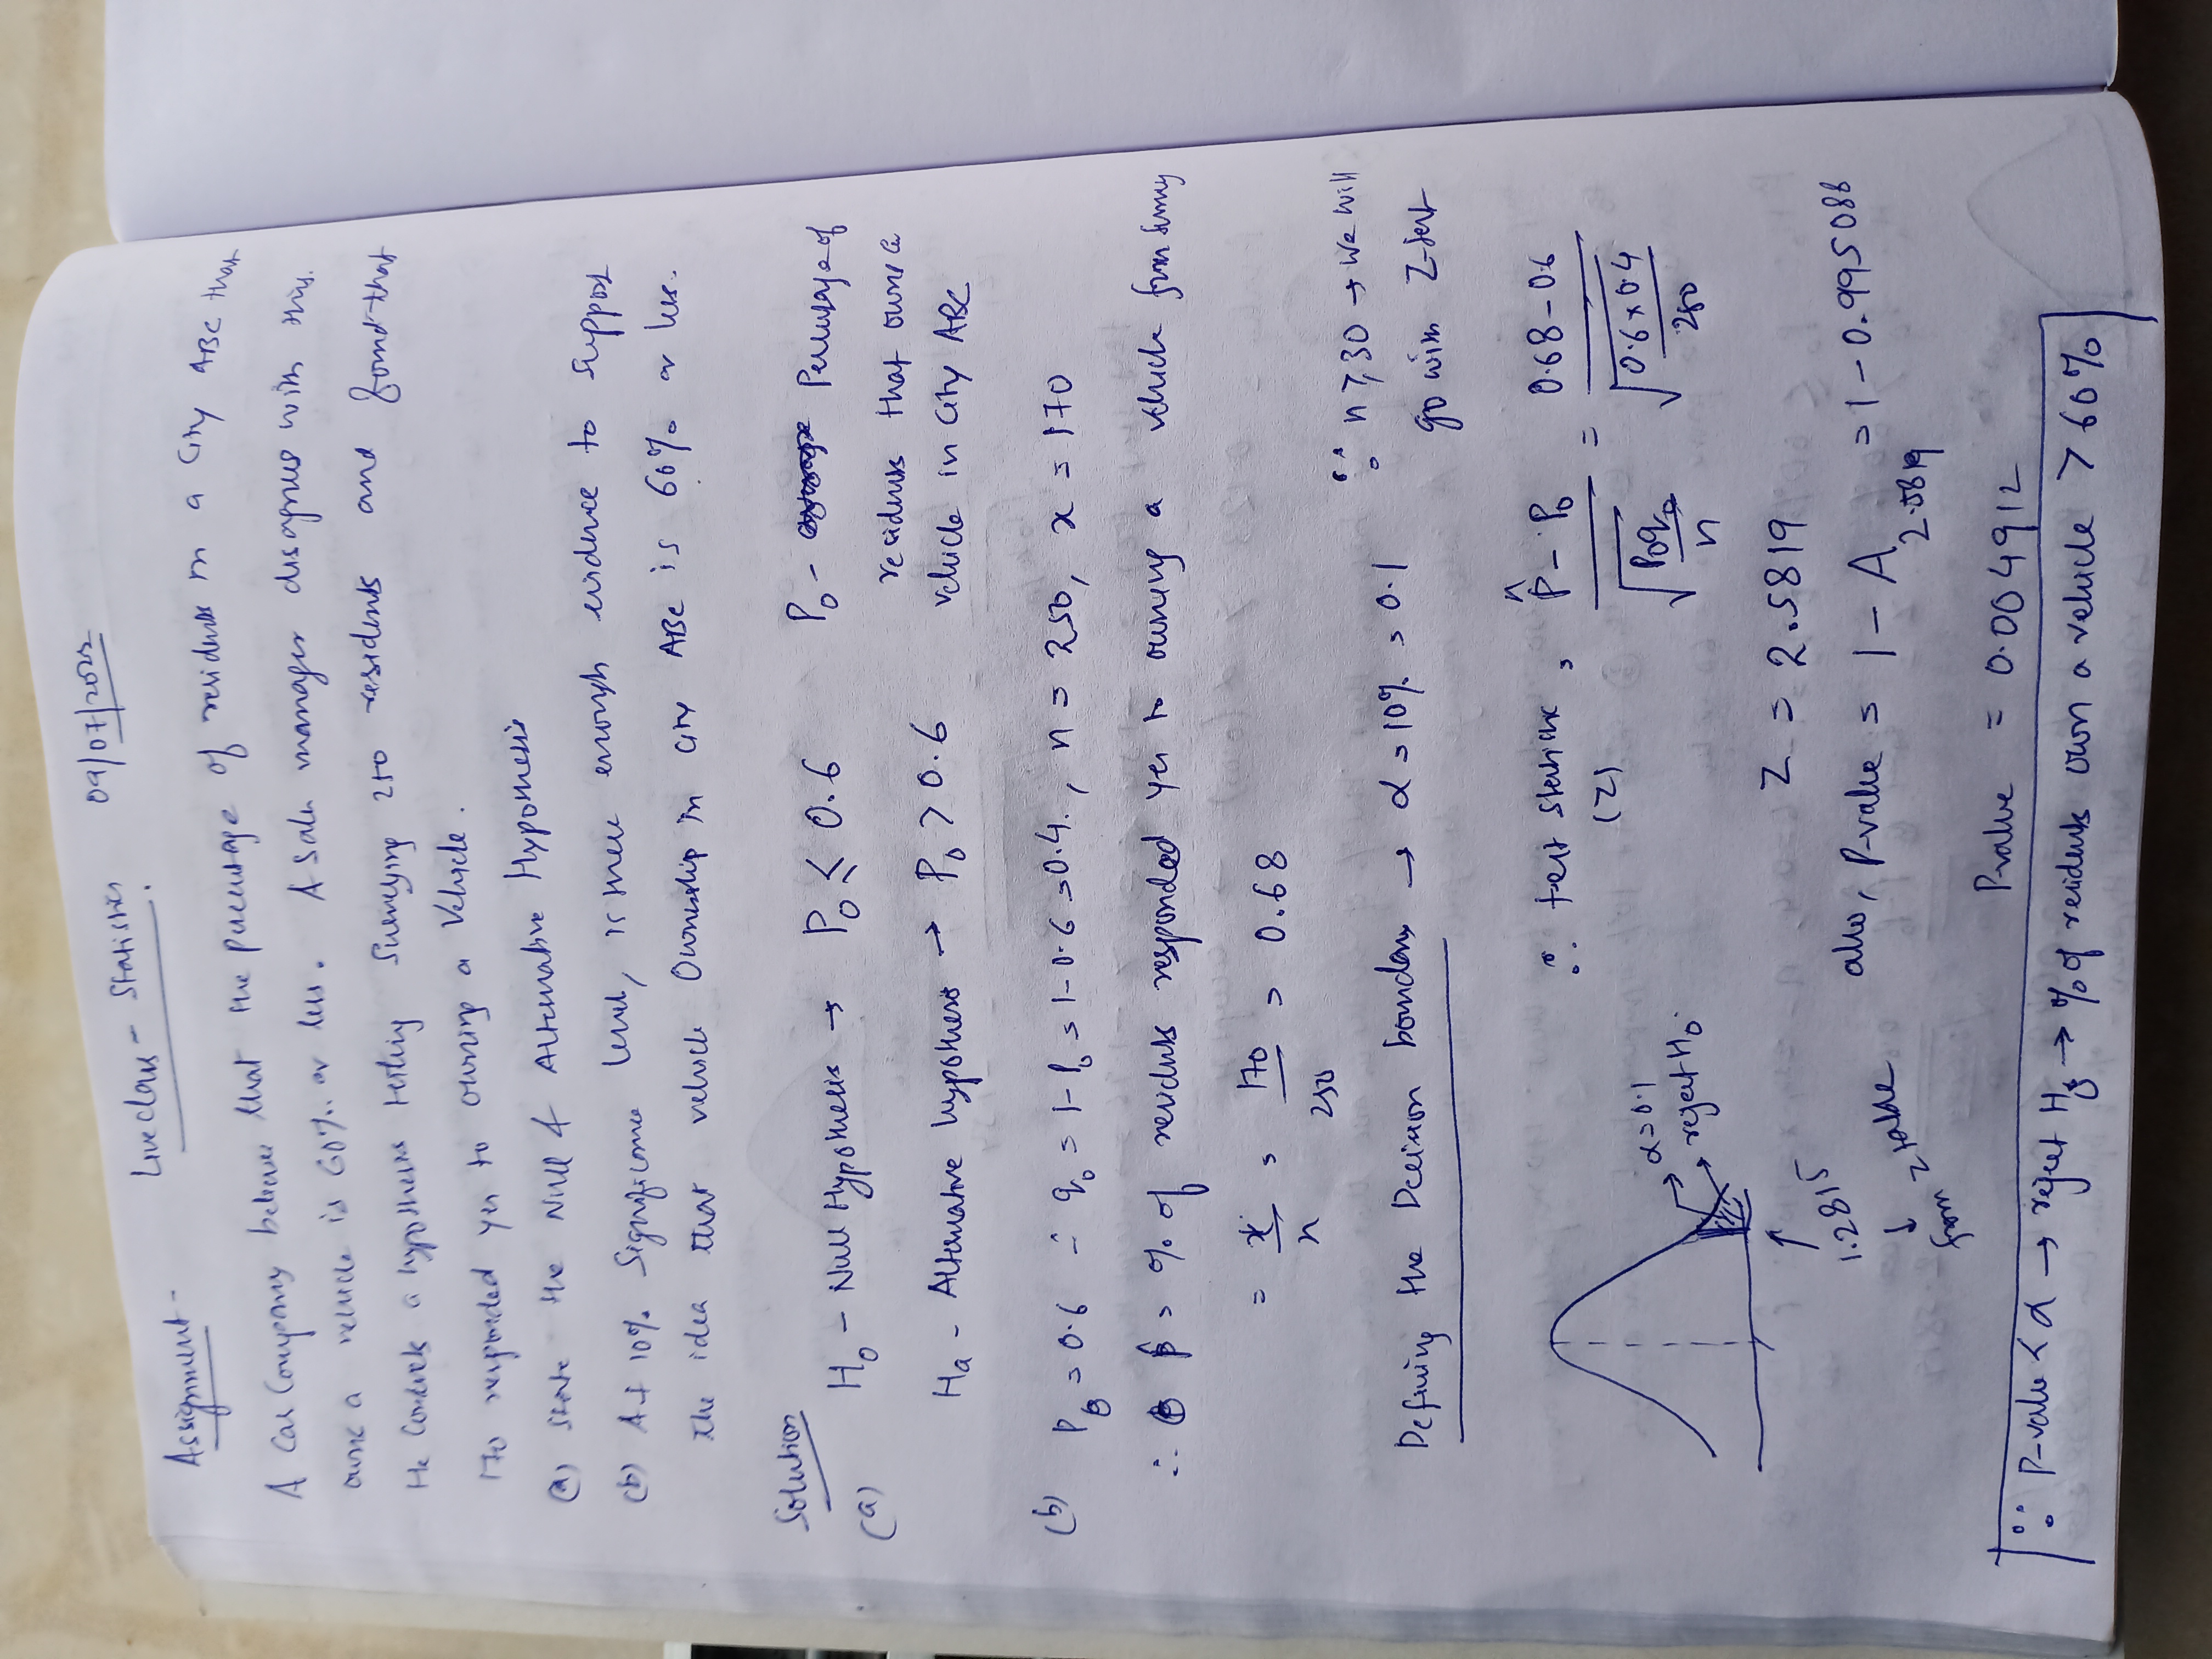 Live class - Statistics 09/07/2022
Assignment -
A Car Company believes that the percentage of residents in a City ABC that
owns a vehicle is 60% or less. A Sales manager disagrees with this.
He conducts a hypothesis testing Surveying 250 residents and found that
170 responded yes to owning a Vehicle.
(a) State the Null & Alternative Hypothesis
(b) At 10% Significance level, is there enough evidence to support
the idea that vehicle Ownership in City ABC is 60% or less.
Solution
(a) H₀ - Null Hypothesis → P₀ ≤ 0.6 P₀ - Percentage of
residents that owns a
Ha - Alternative hypothesis → P₀ > 0.6 vehicle in City ABC
(b) P₀ = 0.6 ∴ q₀ = 1-P₀ = 1-0.6 = 0.4, n = 250, x = 170
∴ p̂ = % of residents responded yes to owning a vehicle from survey
= x/n = 170/250 = 0.68
∵ n ≥ 30 → we will
Defining the Decision boundary → α = 10% = 0.1 go with Z-test
∴ test statistic (Z) = (P̂ - P₀)/√(P₀q₀/n) = (0.68-0.6)/√(0.6×0.4/250)
α = 0.1
reject H₀
Z = 2.5819
1.2815
↓
from z table
also, P-value = 1 - A 2.5819 = 1 - 0.995088
P-value = 0.004912
∵ P-value < α → reject H₀ → % of residents own a vehicle > 60%